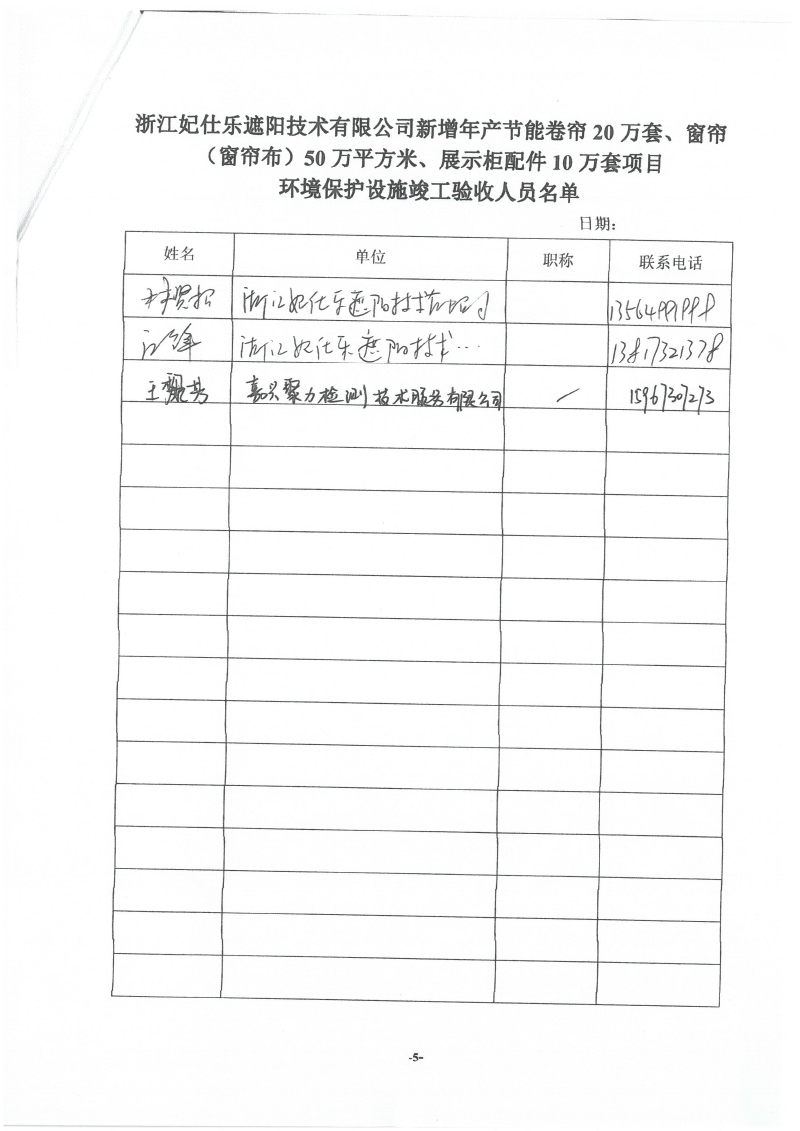 浙江妃仕乐遮阳技术有限公司新增年产节能卷帘 20 万套、窗帘
（窗帘布）50 万平方米、展示柜配件 10 万套项目
环境保护设施竣工验收人员名单
日期：
姓名 单位 职称 联系电话
浙江妃仕乐遮阳技术有限公司
浙江妃仕乐遮阳技术… 13817321378
王 嘉兴聚力检测技术服务有限公司 / 15967307273
-5-